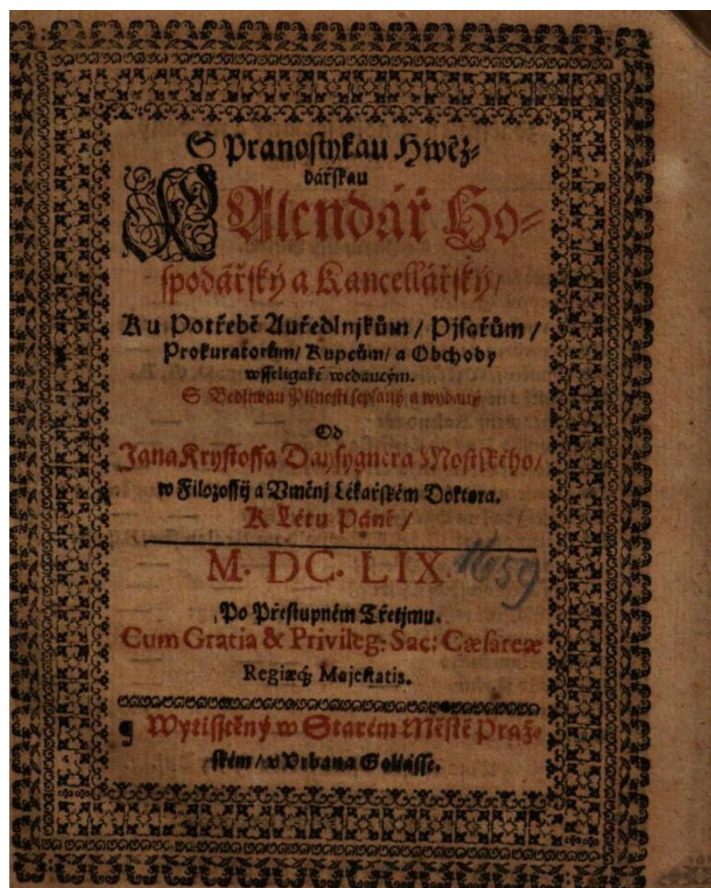 S Pranostykau Hwěz-
dářskau
KAlendář Ho-
spodářský a Kancellářský/
Ku Potřebě Auředlnjkům/ Pjsařům/
Prokuratorům/ Kupcům/ a Obchody
wsseligaké wedaucým.
S Bedliwau Pilnosti sepsaný a wydaný
Od
Jana Krystoffa Mostského/
w Filozoffij a Vměnj Lékařském Doktora.
K Létu Páně/
M. DC. LIX.
1659
Po Přestupném Třetjmu.
Cum Gratia & Privileg: Sac: Cæsareæ
Regiæq; Majestatis.
¶ Wytisstěný w Starém Městě Praž-
ském/ v Vrbana Goliásse.